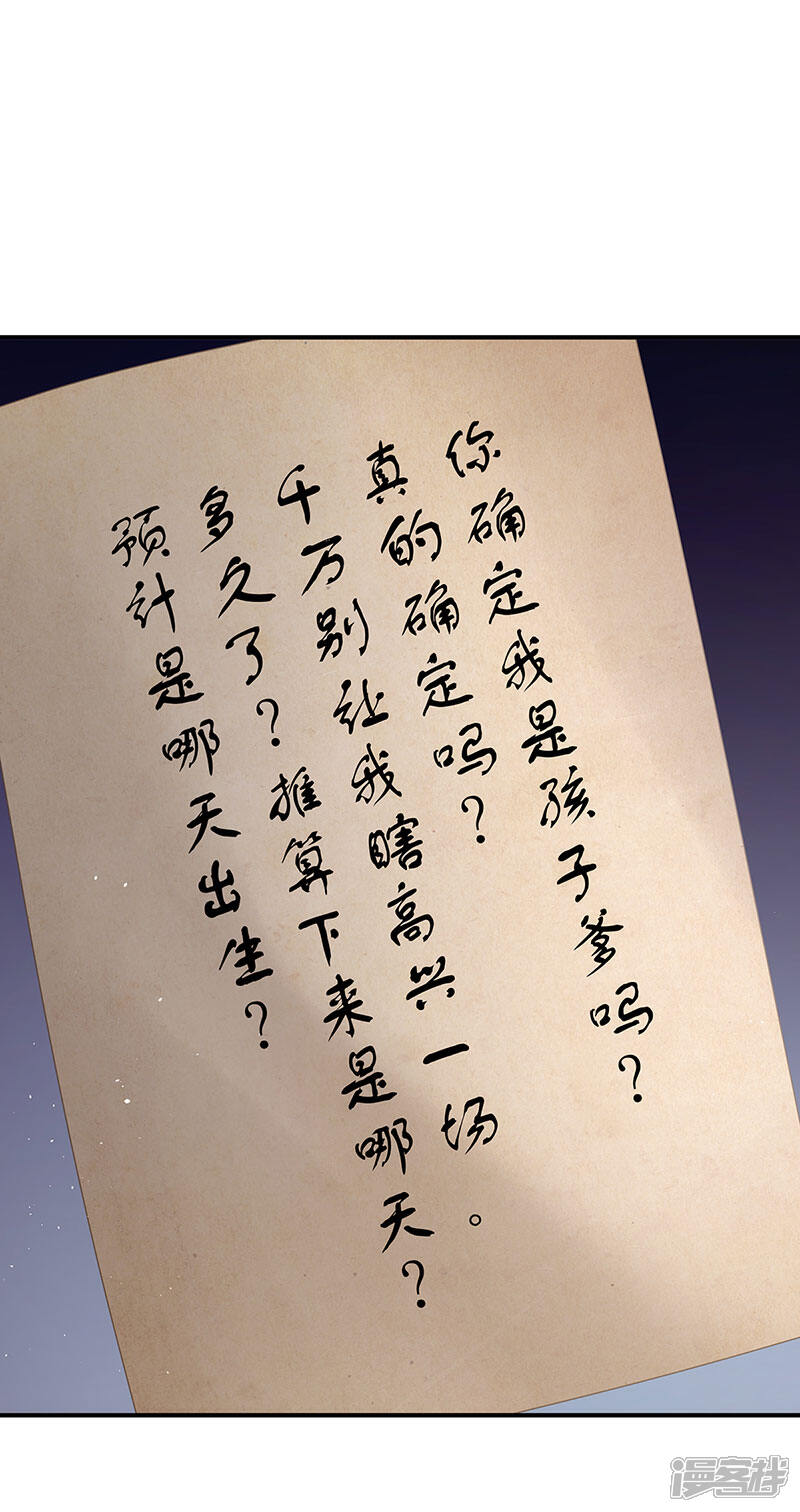 你确定我是孩子爹吗？
真的确定吗？
千万别让我瞎高兴一场。
多久了？推算下来是哪天？
预计是哪天出生？
漫客栈